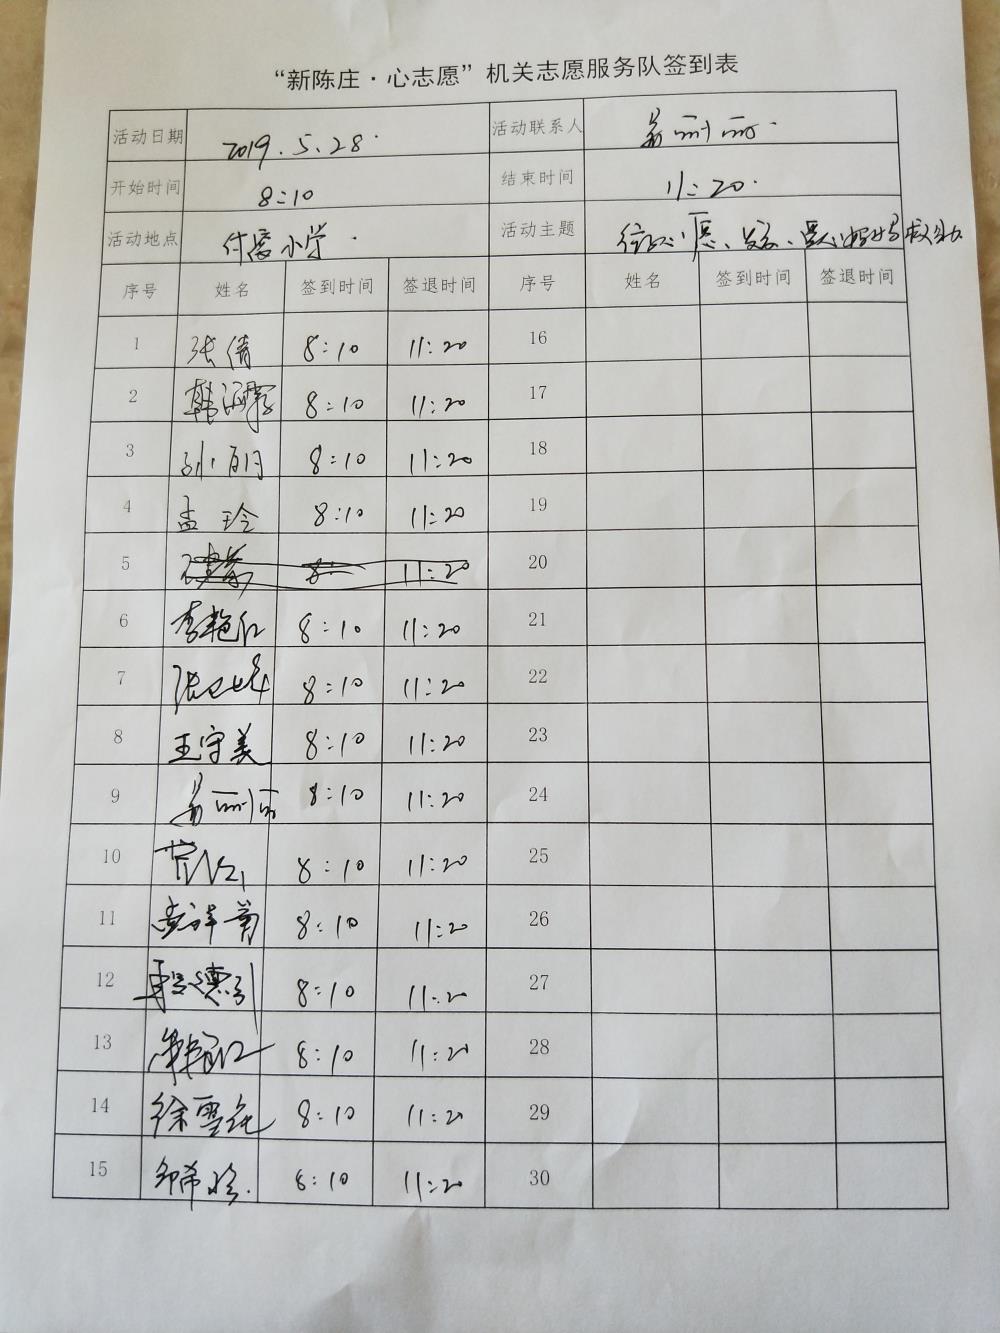 “新陈庄·心志愿”机关志愿服务队签到表
活动日期 2019.5.28. 活动联系人
开始时间 8:10 结束时间 11:20.
活动地点 付窑小学. 活动主题
序号 姓名 签到时间 签退时间 序号 姓名 签到时间 签退时间
1 张倩 8:10 11:20 16
2 8:10 11:20 17
3 8:10 11:20 18
4 孟玲 8:10 11:20 19
5 8: 11:20 20
6 李艳红 8:10 11:20 21
7 8:10 11:20 22
8 王守美 8:10 11:20 23
9 8:10 11:20 24
10 8:10 11:20 25
11 8:10 11:20 26
12 8:10 11:20 27
13 8:10 11:20 28
14 徐雪纯 8:10 11:20 29
15 8:10 11:20 30